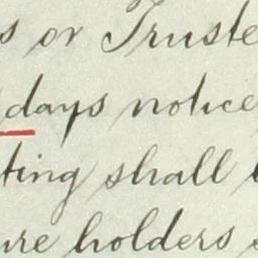 s or Truste
days notice
ting shall
ure holders